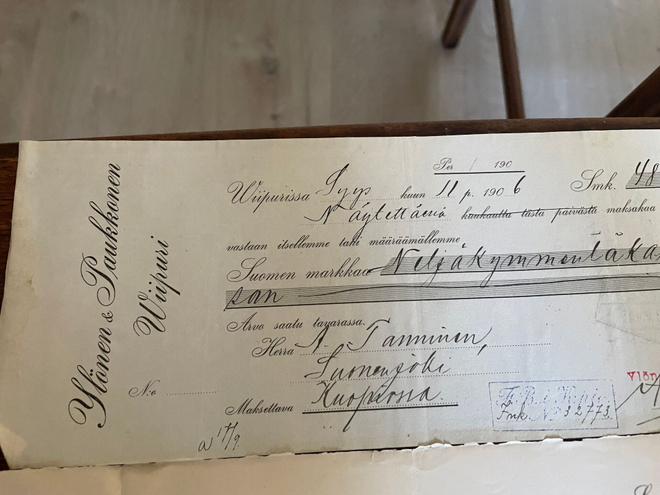 Ylönen & Paukkonen
Wiipuri
Per / 190
Wiipurissa Syys kuun 11 p. 1906 Smk. 48
Näytettäessä kuukautta tästä päivästä maksakaa
vastaan itsellemme tahi määräämällemme
Suomen markkaa Neljäkymmentäka
san
Arvo saatu tavarassa.
Herra A. Tanninen,
Suonenjoki
N:o
Maksettava Kuopiossa.
Fmk. No 32773
Ylön
17/9